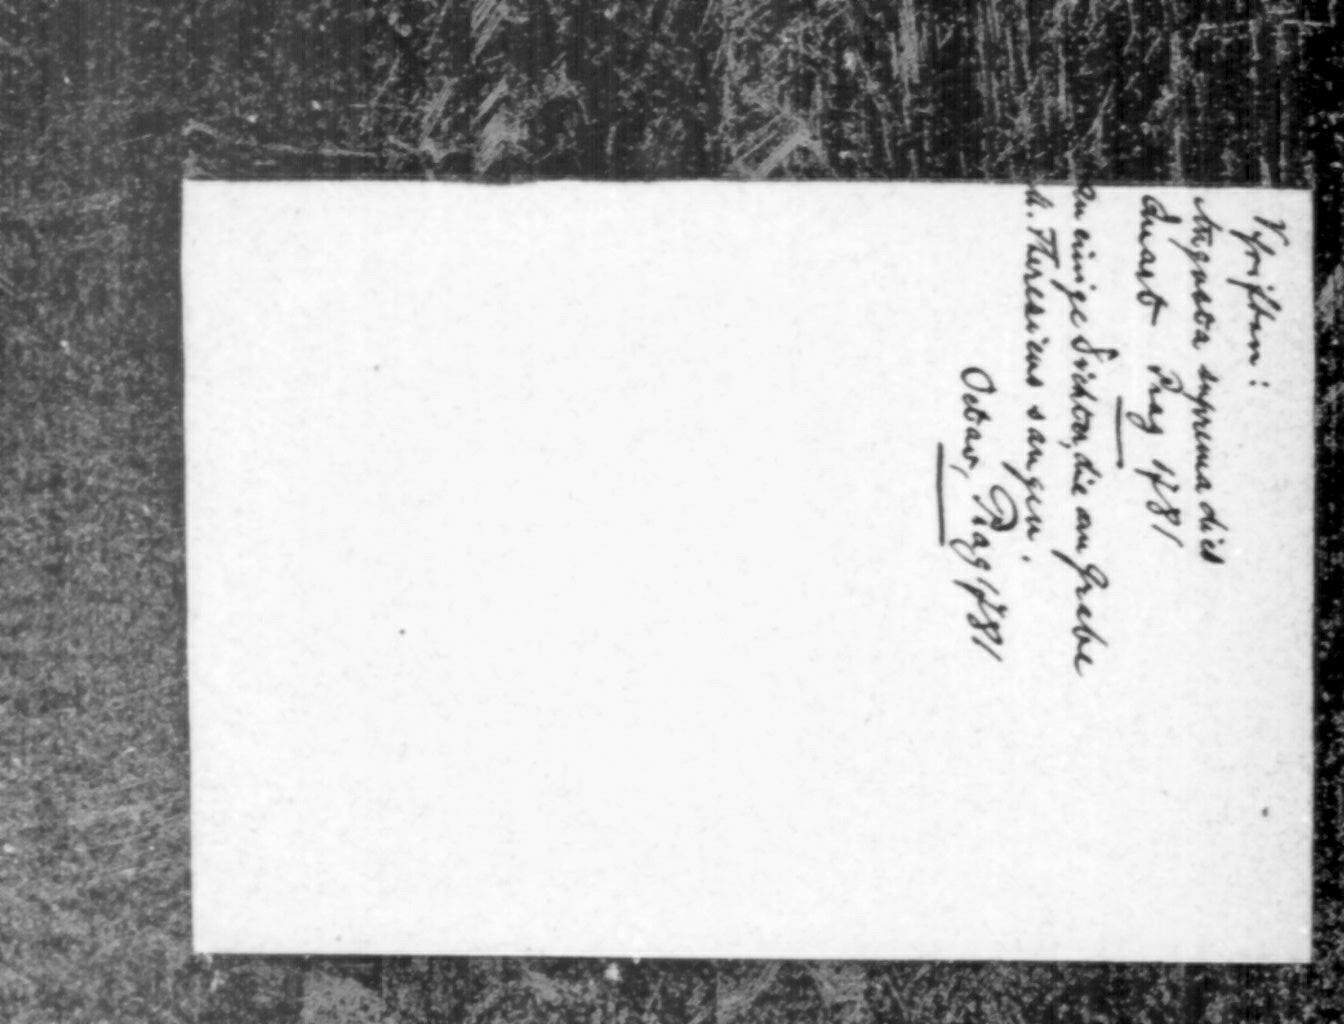 Schriften:
Augusta suprema dies
Quart Prag 1781
An einige Dichter, die am Grabe
M. Theresiens sangen.
Octav, Prag 1781